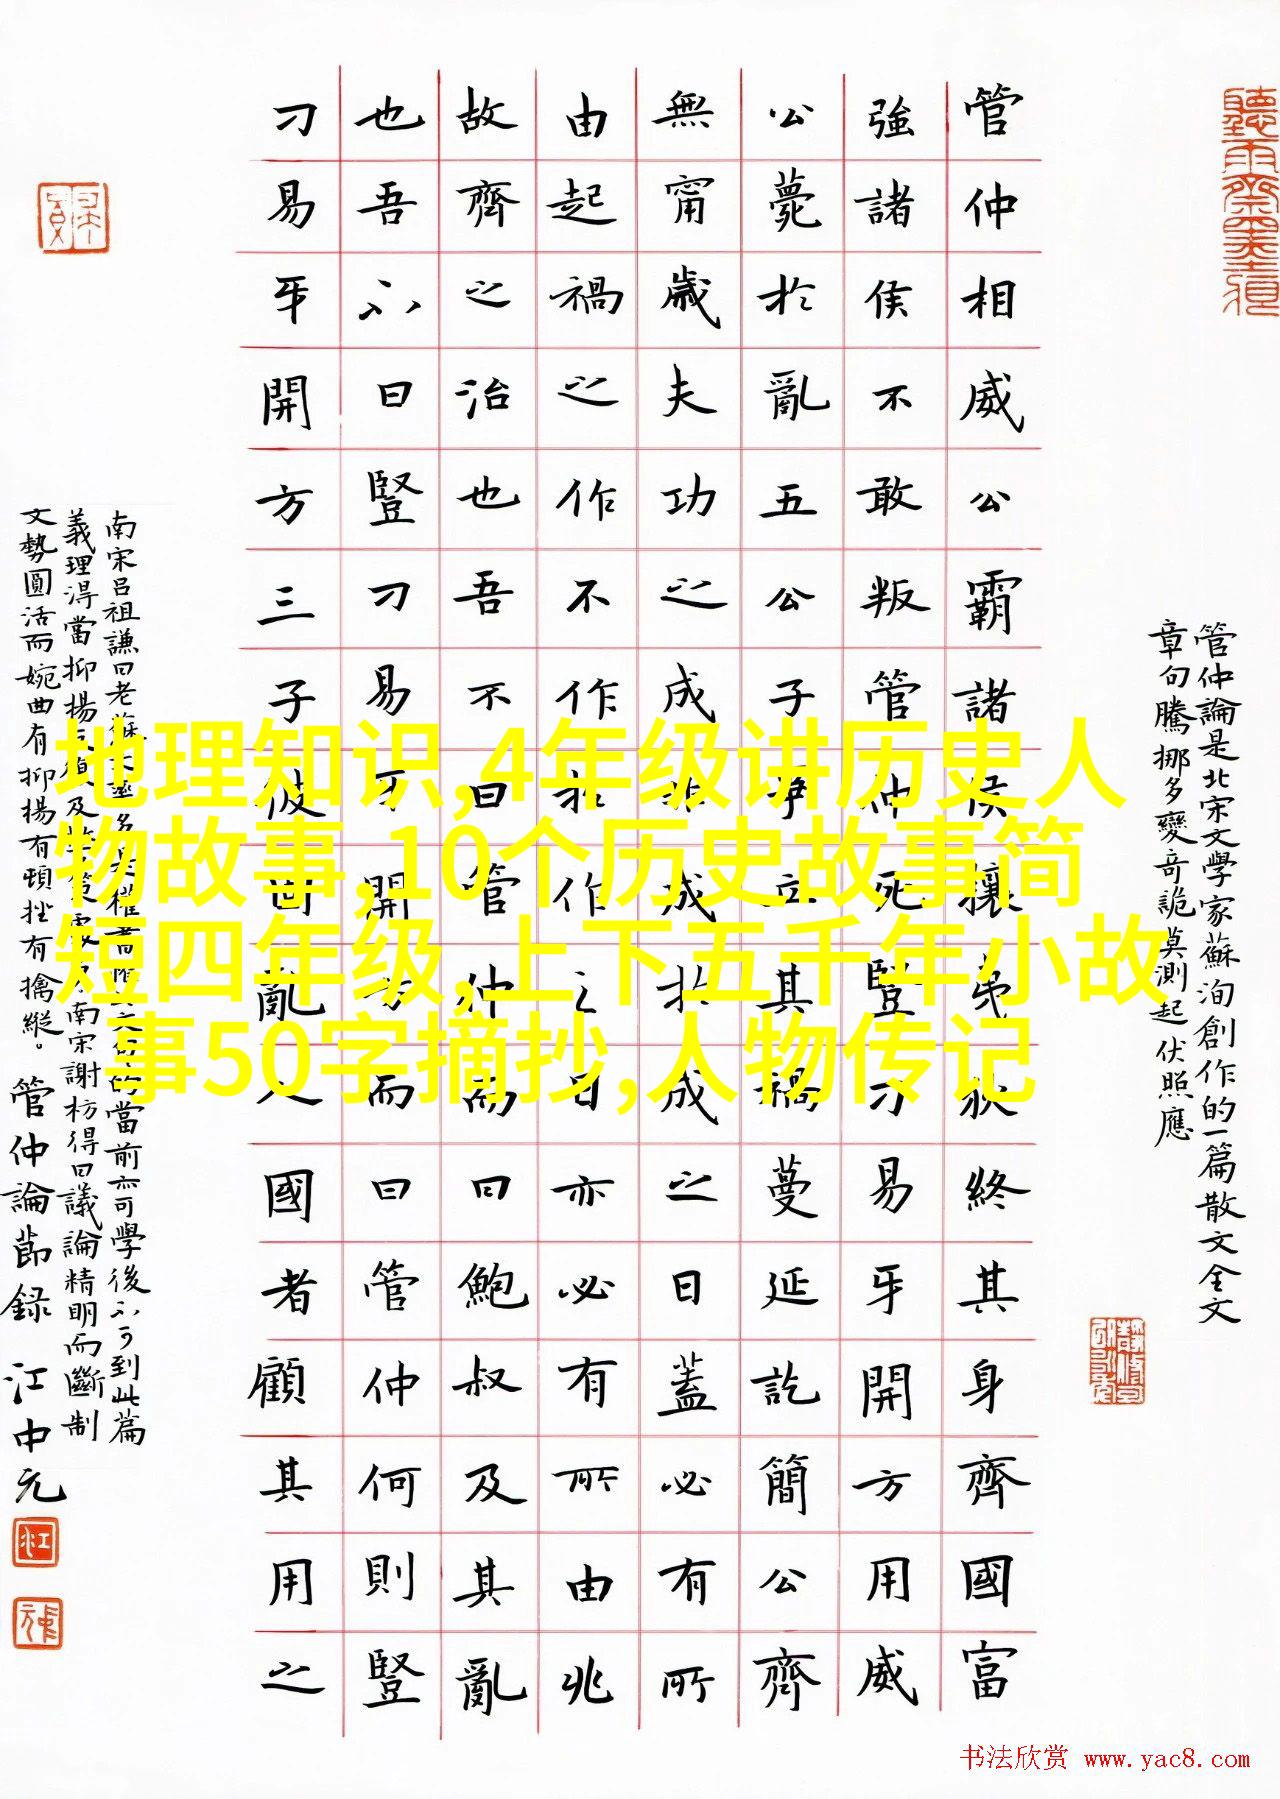 管仲相威公霸諸侯攘夷狄終其身齊國富
強諸侯不敢叛管仲死豎刁易牙開方用威
公薨於亂五公子爭立其禍蔓延訖簡公齊
無甯歲夫功之成非成於成之日蓋必有所
由起禍之作不作於作之日亦必有所由兆
故齊之治也吾不曰管仲而曰鮑叔及其亂
也吾不曰豎刁易牙開方而曰管仲何則豎
刁易牙開方三子彼固亂人國者顧其用之
管仲論是北宋文學家蘇洵創作的一篇散文全文
章句騰挪多變奇詭莫測起伏照應
南宋呂祖謙曰老蘇文 的當前亦可學後不可到此篇
義理淂當抑揚反 及 南宋謝枋得曰議論精明而斷制
文勢圓活而婉曲有抑揚有頓挫有擒縱。管仲論節録 江中元
地理知识,4年级讲历史人
物故事,10个历史故事简
短四年级,上下五千年小故
事50字摘抄,人物传记
书法欣赏 www.yac8.com